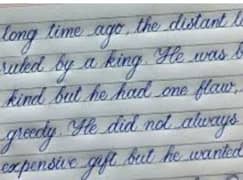 long time ago, the distant
ruled by a king. He was
kind but he had one flaw,
greedy. He did not always
expensive gift but he wanted